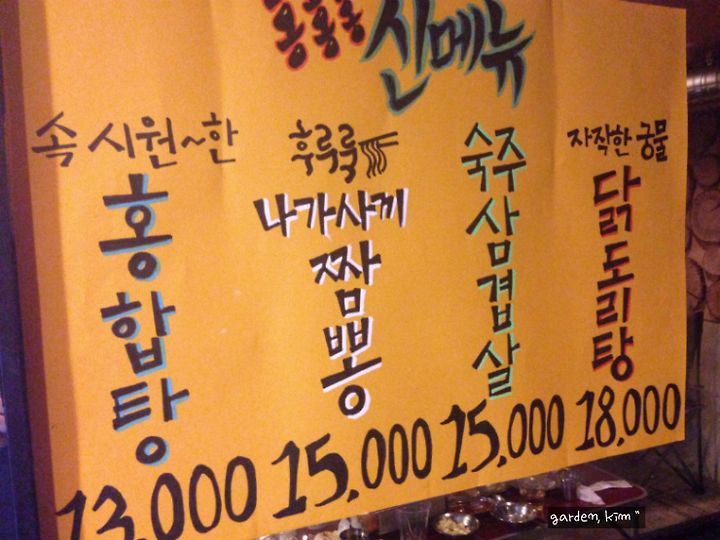 홍홍홍 신메뉴
속 시원~한
홍합탕
13,000
후루룩
나가사끼
짬뽕
15,000
숙주
삼겹살
15,000
자작한 궁물
닭도리탕
18,000
garden, kim "